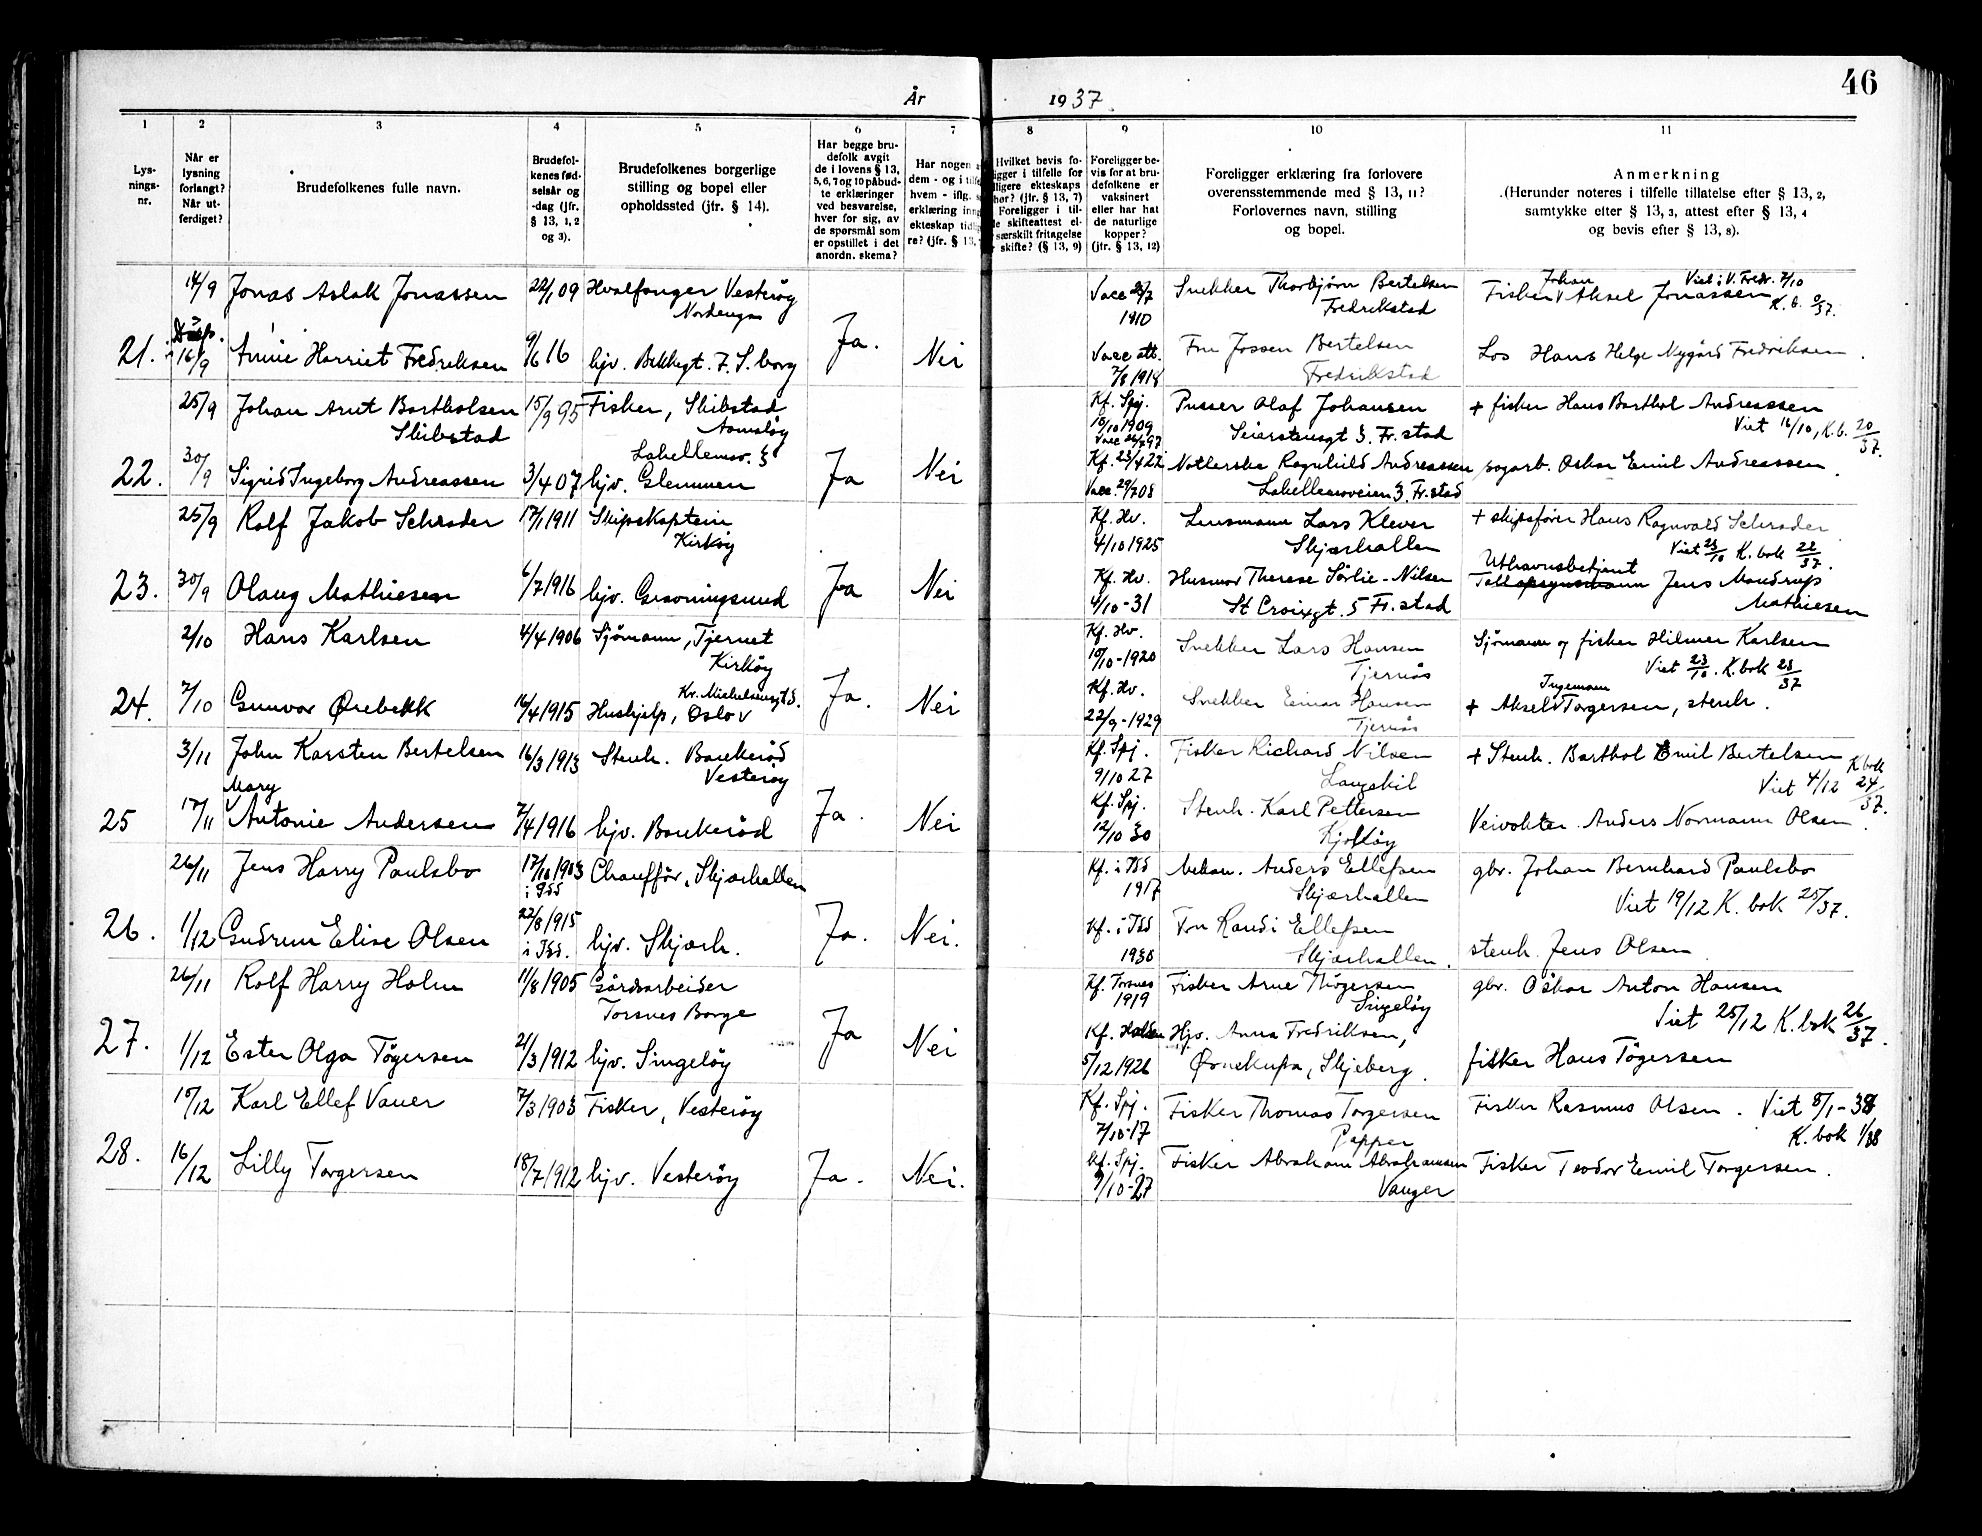 46
År 1937.
1 2 3 4 5 6 7 8 9 10 11
Lys-
nings-
nr.
Når er
lysning
forlangt?
Når ut-
ferdiget?
Brudefolkenes fulle navn.
Brudefol-
kenes fød-
selsår og
-dag (jfr.
§ 13, 1, 2
og 3).
Brudefolkenes borgerlige
stilling og bopel eller
opholdssted (jfr. § 14).
Har begge bru-
defolk avgit
de i lovens § 13,
5, 6, 7 og 10 påbud-
te erklæringer
ved besvarelse,
hver for sig, av
de spørsmål som
er opstillet i det
anordn. skema?
Har nogen
dem - og i tilf
hvem - iflg.
erklæring inng
ekteskap tidl
re? (jfr. § 13,
Hvilket bevis fo-
igger i tilfelle for
lligere ekteskaps
hør? (jfr. § 13, 7)
Foreligger i til-
le skifteattest el-
særskilt fritagelse
skifte? (§ 13, 9)
Foreligger be-
vis for at bru-
defolkene er
vaksinert
eller har hat
de naturlige
kopper?
(jfr. § 13, 12)
Foreligger erklæring fra forlovere
overensstemmende med § 13, 11?
Forlovernes navn, stilling
og bopel.
Anmerkning
(Herunder noteres i tilfelle tillatelse efter § 13, 2,
samtykke efter § 13, 3, attest efter § 13, 4
og bevis efter § 13, 8).
14/9 Jonas Aslak Jonassen 22/1 09 Hvalfanger Vesterøy
Nordengen
Vacc 23/7
1910
Snekker Thorbjørn Bertelsen
Fredrikstad
Johan
Fisker V Aksel Jonassen
Viet i V. Fredr. 2/10
K. b. 9/37.
21. 16/9 Annie Harriet Fredriksen 9/6 16 hjv. Bekkegt. 7. S.borg Ja. Nei
Vacc att.
7/8 1918
Fru Jossen Bertelsen
Fredrikstad
Los Hans Helge Nygård Fredriksen.
25/9 Johan Arnt Bartholsen
Skibstad
15/9 95 Fisker, Skibstad
Asmaløy
Kf. Spj.
10/10 1909
Vacc 24/7 97
Pusser Olaf Johansen
Seierstensgt 3. Fr.stad
+ fisker Hans Barthol Andreassen
Viet 16/10, K.b. 20/37.
22. 30/9 Sigrid Ingeborg Andreassen 3/4 07 hjv. Glemmen
Labellesv. 3
Ja Nei
Kf. 23/4 22
Vacc. 29/7 08
Notlerske Ragnhild Andreassen
Labellesveien 3, Fr.stad
pogarb. Oskar Emil Andreassen.
25/9 Rolf Jakob Schrøder 17/1 1911 Skipskaptein
Kirkøy
Kf. Hv.
4/10 1925
Lensmann Lars Klever
Skjærhallen
+ skipsfører Hans Ragnvald Schrøder
Viet 23/10 K. bok 22/37.
23. 30/9 Olaug Mathiesen 6/7 1916 hjv. Gravningsund Ja Nei
Kf. Hv.
4/10-31
Husmor Therese Sørlie-Nilsen
St Croixgt. 5 Fr.stad
Uthavnsbetjent
Tollopsynsmann Jens Mandrup
Mathiesen
2/10 Hans Karlsen 4/4 1906 Sjømann, Tjernet
Kirkøy
Kf. Hv.
10/10-1920
Snekker Lars Hansen
Tjernås
Sjømann og fisker Hilmer Karlsen
Viet 23/10. K.bok 23/37
24. 7/10 Gunvor Ørebekk 16/4 1915 Hushjelp, Oslo V
Kr. Michelsensgt 5.
Ja. Nei
Kf. Hv.
22/9-1929
Snekker Einar Hansen
Tjernås
Ingemann
+ Aksel V Torgersen, stenh.
3/11 John Karsten Bertelsen 16/3 1913 Stenh. Bankerød
Vesterøy
Kf. Spj.
9/10 27
Fisker Richard Nilsen
Langekil
+ Stenh. Barthol Emil Bertelsen
Viet 4/12 K.bok 24/37.
25 17/11 Mary
V Antonie Andersen 7/4 1916 hjv. Bankerød Ja. Nei
Kf. Spj.
12/10 30
Stenh. Karl Pettersen
Kjølkøy
Veivokter Anders Normann Olsen.
26/11 Jens Harry Paulsbo 17/10 1903
i Idd
Chauffør, Skjærhallen
Kf. i Idd
1917
Mekan. Anders Ellefsen
Skjærhallen
gbr. Johan Bernhard Paulsbo
Viet 19/12 K. bok 25/37.
26. 1/12 Gudrun Elise Olsen 22/8 1915
i Idd.
hjv. Skjærh. Ja. Nei.
Kf. i Idd
1930
Fru Randi Ellefsen
Skjærhallen.
stenh. Jens Olsen
26/11 Rolf Harry Holm 11/8 1905 Gårdsarbeider
Torsnes Borge
Kf. Torsnes
1919
Fisker Arne Thøgersen
Singeløy
gbr. Oskar Anton Hansen
Viet 25/12 K.bok 26/37.
27. 1/12 Ester Olga Tøgersen 21/3 1912 hjv. Singeløy Ja Nei
Kf. Halden
5/12 1926
Hjv. Anna Fredriksen,
Ørnekupa, Skjeberg.
fisker Hans Tøgersen
15/12 Karl Ellef Vauer 7/3 1903 Fisker, Vesterøy
Kf. Spj.
7/10-17
Fisker Thomas Torgersen
Papper
Fisker Rasmus Olsen. Viet 8/1-38
K. bok 1/38
28. 16/12 Lilly Torgersen 18/7 1912 hjv. Vesterøy Ja. Nei.
Kf. Spj.
9/10-27
Fisker Abraham Abrahamsen
Vauger
Fisker Teodor Emil Torgersen.